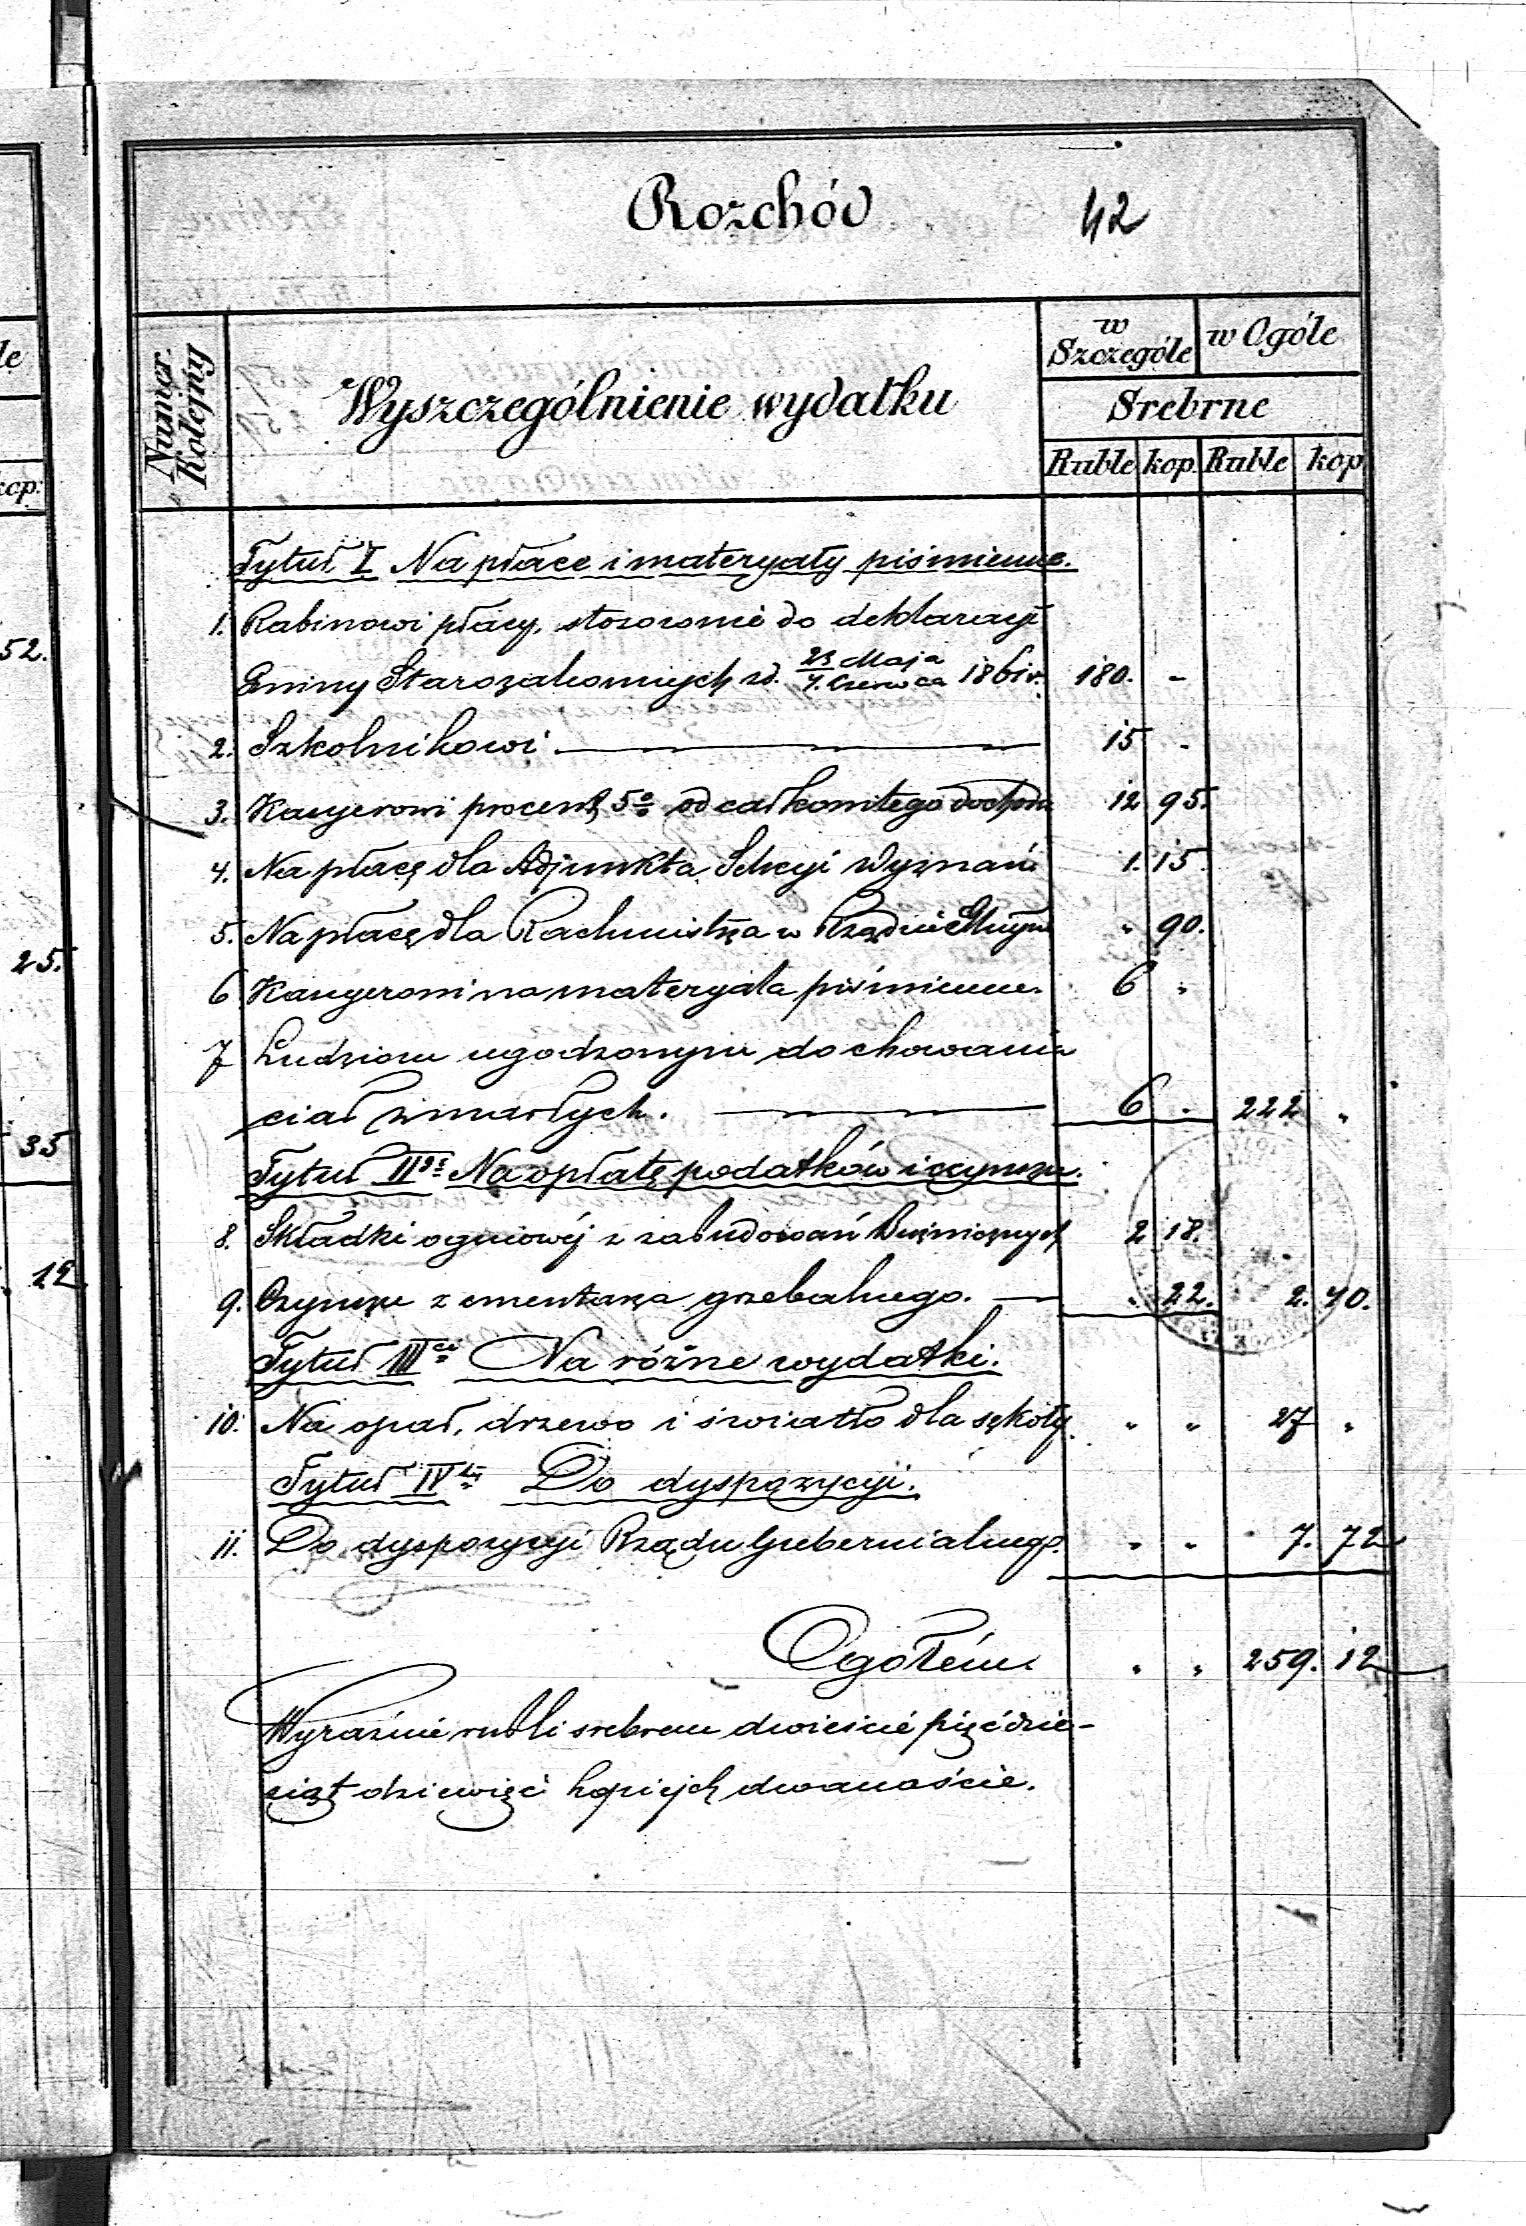 Rozchód 42
Numer Kolejny
Wyszczególnienie wydatku
w Szczególe
w Ogóle
Srebrne
Ruble kop. Ruble kop
Tytuł I Na płace i materyały piśmienne.
1. Rabinowi płacy, stosownie do deklaracyi
Gminy Starozakonnych z d. 23 Maja / 4. Czerwca 1861 r. 180. -
2. Szkolnikowi 15 -
3. Kasyerowi procent 5% od całkowitego dochodu 12 95.
4. Na płacę dla Adjunkta Sekcyi Wyznań 1. 15.
5. Na płacę dla Rachmistrza w Rządzie " 90.
6 Kasyerowi na materyała piśmienne. 6 "
7 Ludziom ugodzonym do chowania
ciał zmarłych. 6 - 222 "
Tytuł II Na opłatę podatków i czynszu.
8. Składki ogniowéj z zabudowań Bużnicznych 2 18.
9. Czynszu z cmentarza grzebalnego. " 22. 2. 40.
Tytuł III Na różne wydatki.
10. Na opał, drzewo i światło dla szkoły. " " 27 "
Tytuł IV Do dyspozycyi.
11. Do dyspozycyi Rządu Gubernialnego. " " 7. 72
Ogółem " " 259. 12
Wyraźnie rubli srebrem dwieście pięćdzie-
siąt dziewięć kopiejek dwanaście.
le
kop.
52.
25.
35
12